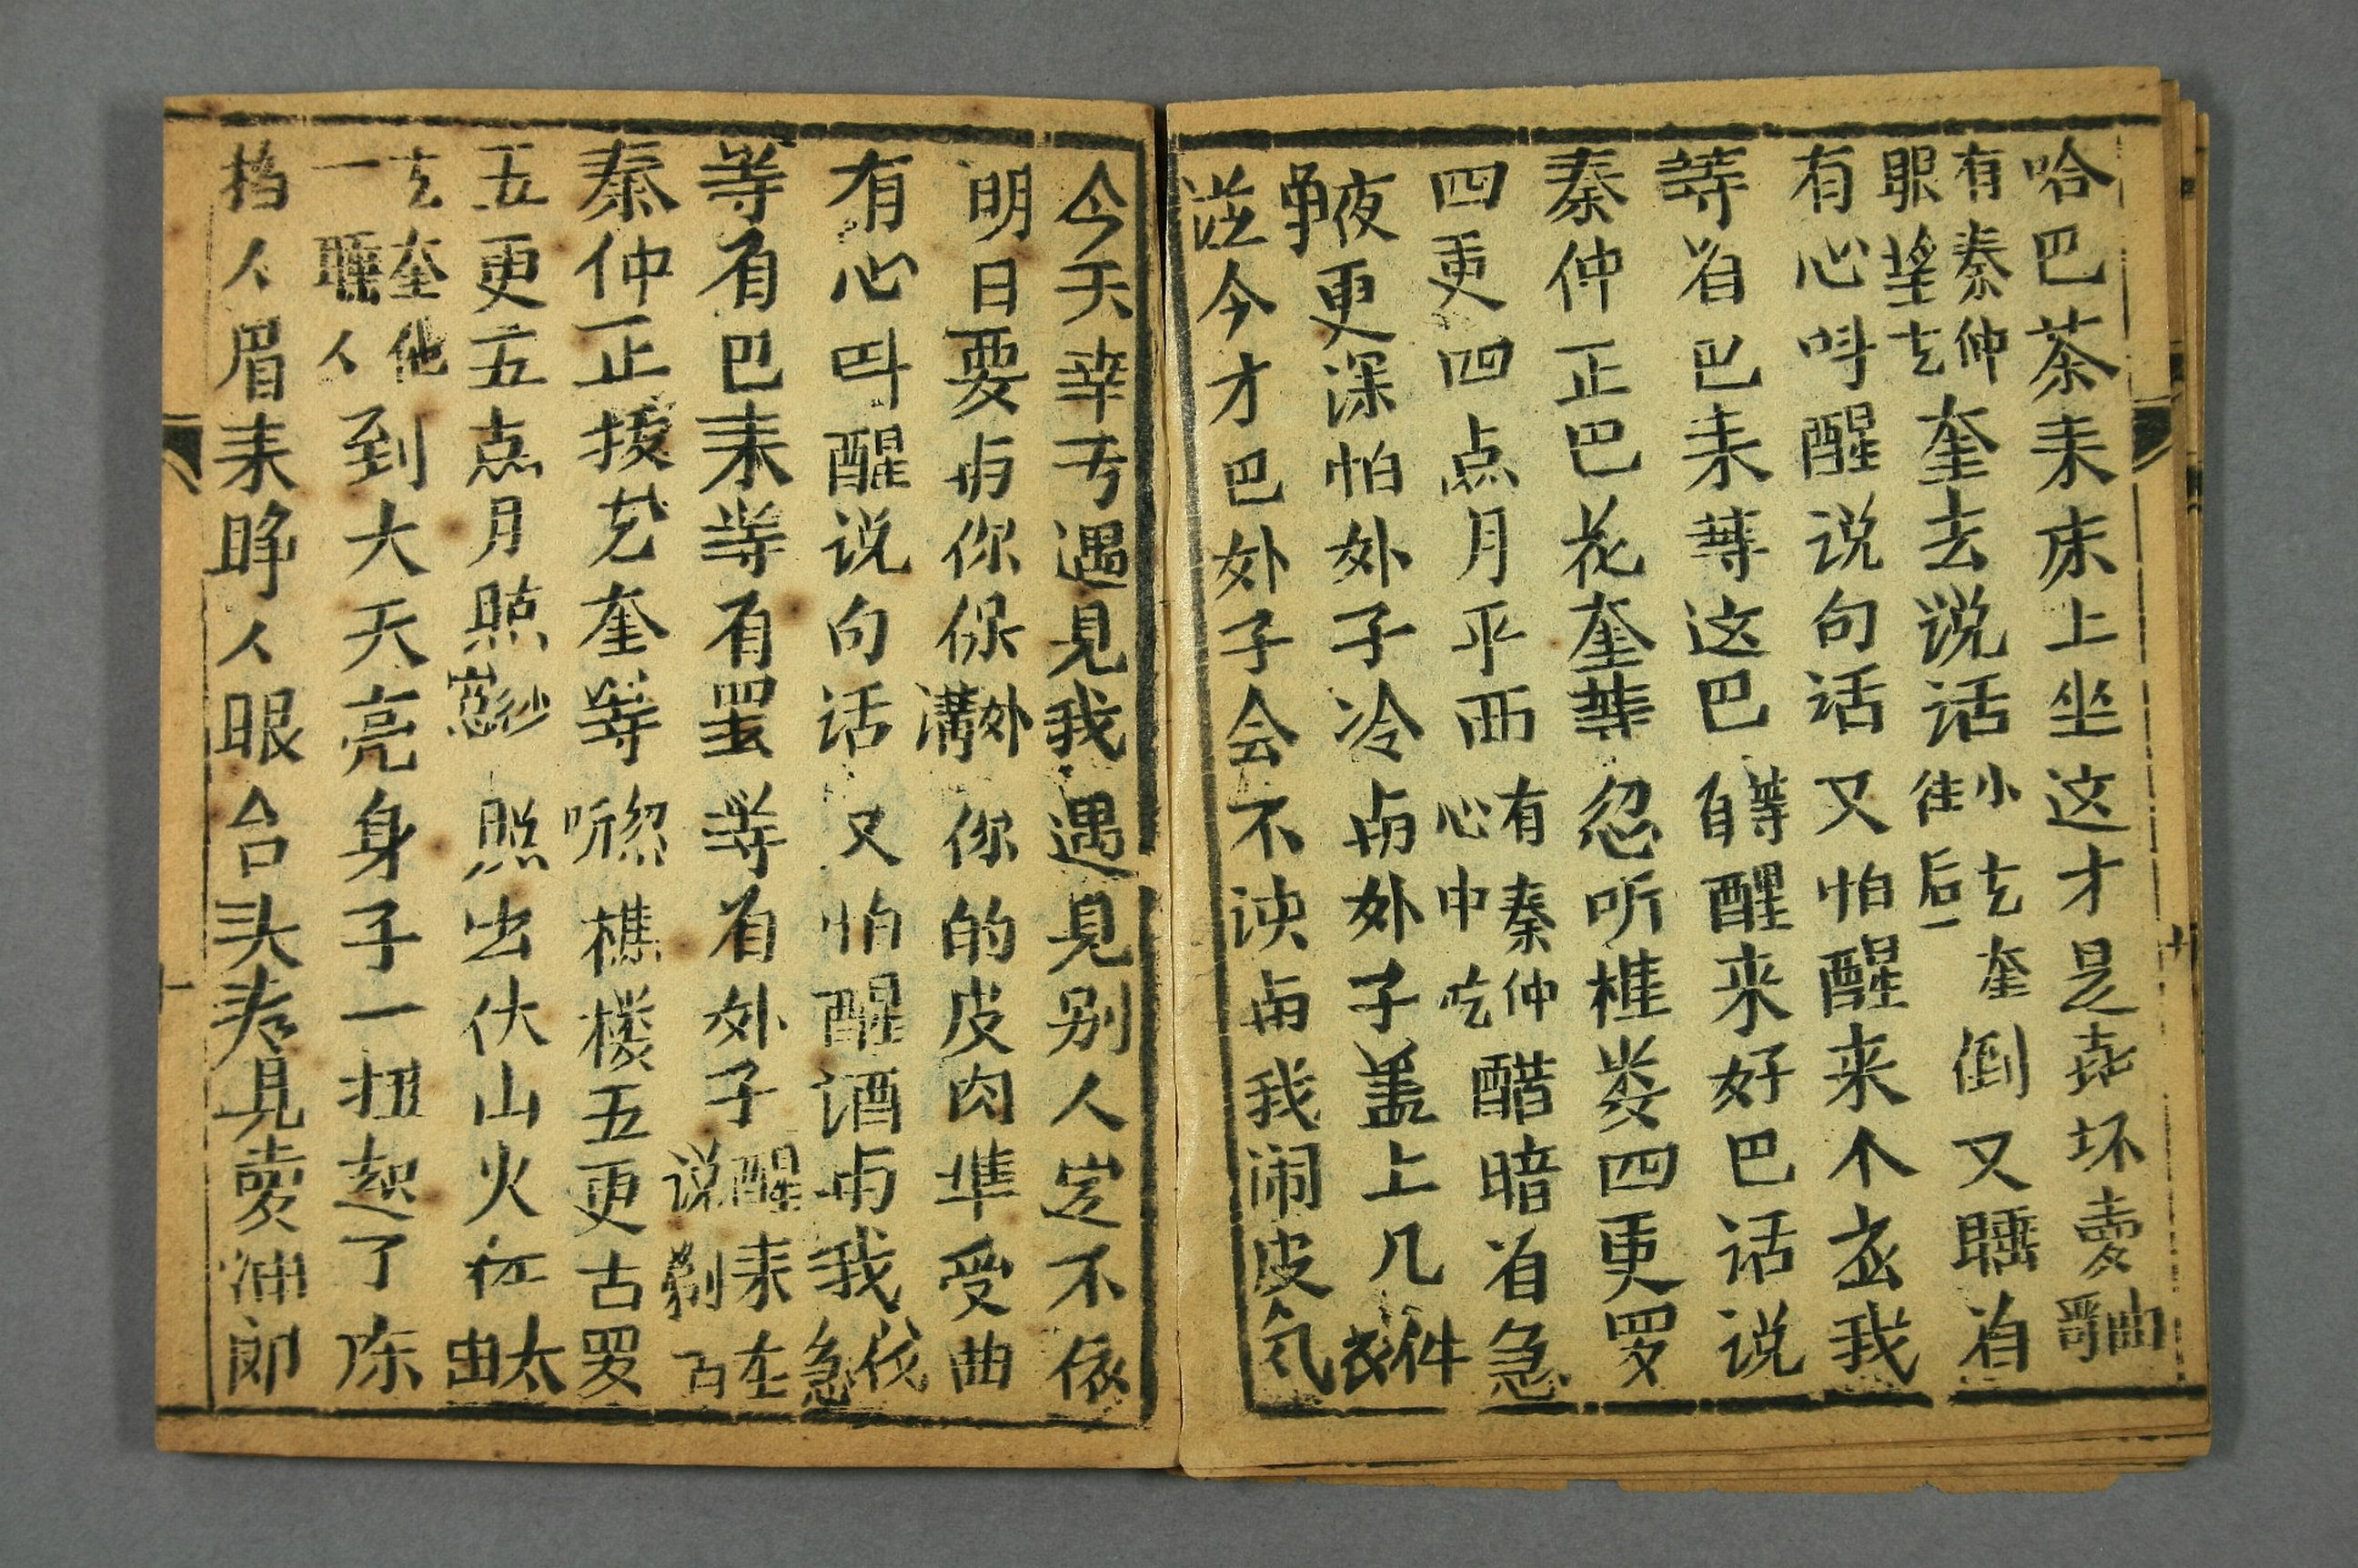 哈巴茶耒床上坐这才是坏卖曲
有秦仲眼望玄奎去说话小玄奎往后一倒又睡着
有心叫醒说句话又怕醒来不玄我
等着巴耒等这巴等着醒来好巴话说
秦仲正巴花奎等忽听樵娄四更罗
四更四点月平西有秦仲心中吃醋暗着急
夜更深怕外子冷与外子盖上几件衣
今才巴外子会不与我闹皮气
今天幸亏遇见我遇见别人定不依
明日要与你保外你的皮肉准受曲
有心叫醒说句话又怕醒酒与我急
等有巴耒等有罢等着外子醒耒在说
秦仲正奎等忽听樵楼五更古罗
五更五点月照纱窓照出伏山火红太由
玄奎他一睡人到大天亮身子一扭起了床
人眉耒睁人眼台头看見卖油郎